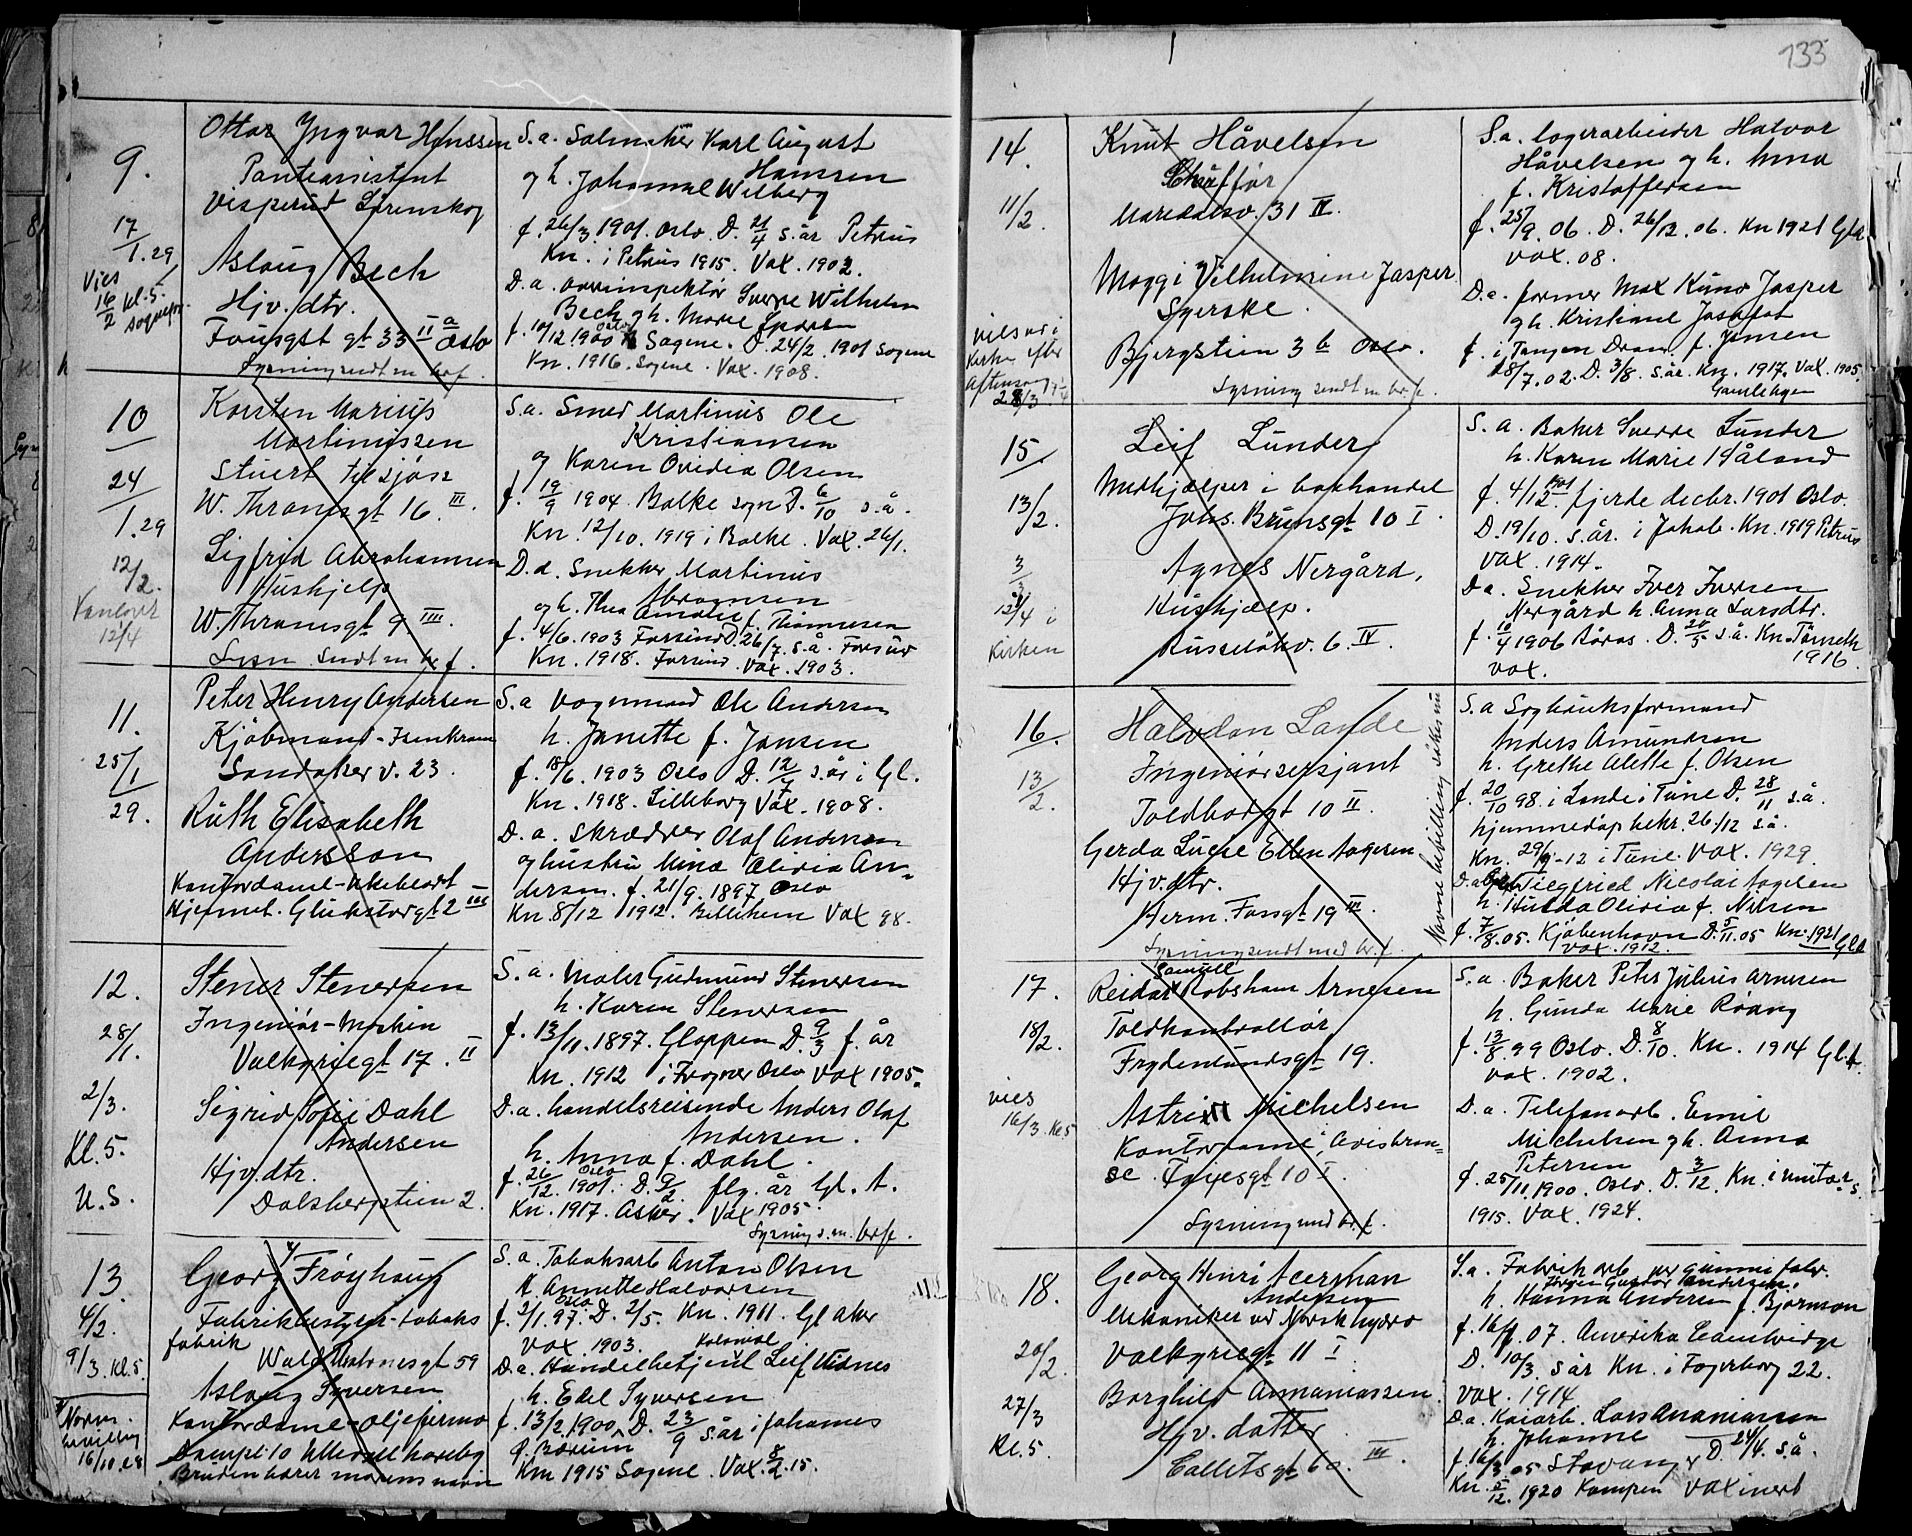 133
9.
17/1.29
Vies
16/2 kl. 5.
Ottar Yngvar Hanssen
Visperud Lørenskog
Aslaug Bech
Hjv. dtr.
gt 33 II a Oslo
Lysning sendt m br f.
S. a. Salmaker Karl August
Hanssen
og h. Johanne Wilberg
f. 26/3 1901. Oslo. D. 21/4 s. år Petrus
Kn. i Petrus 1915. Vax. 1902.
D. a. Sverre Wilhelm
Bech og h. Marie
f. 10/12 1900 Oslo Sagene. D. 24/2. 1901 Sagene
Kn. 1916. Sagene. Vax. 1908.
10
24/1.29
12/2.
12/4
Karsten Marius
Martiniussen
Stuert tilsjøss
W. Thranesgt 16. III.
Sigfrid Abrahamsen
Hushjelp
W. Thranesgt 9 III.
sendt m br f.
S. a. Smed Martinius Ole
Kristiansen
og Karen Ovidia Olsen
f. 19/9 1904. Balke sogn D. 6/10 s. å.
Kn. 12/10. 1919 i Balke. Vax. 26/1.
D. a. Snekker Martinius
og h. Thea Amalie f.
f. 4/6. 1903 Forsund D. 26/7. s. å.
Kn. 1918. Forsund. Vax. 1903.
11.
25/1
29.
Peter Henry Andersen
Kjøbmand - Isenkram
Sandaker v. 23.
Ruth Elisabeth
Andersson
Kontordame - Ukebladt
Hjemmet. Glückstorgt 2 III
S. a Vognmand Ole Andersen
h. Janette f. Jansen
f. 18/6. 1903 Oslo D. 12/7 s. år i Gl.
Kn. 1918. Lilleborg Vax. 1908.
D. a. Skrædder Olaf Andersen
og hustru Mina Olivia An-
dersen. f. 21/9. 1897. Oslo
Kn 8/12 1912. Vax 98.
12.
28/1.
2/3.
Kl. 5.
U. S.
Stener Stenersen
Ingeniør - Maskin
Valkyriegt 17. II
Sigrid Sofie Dahl
Andersen
Hjv. dtr.
Dalsbergstien 2.
S. a. Maler Gudmund Stenersen
h. Karen Stenersen
f. 13/11. 1897. Gloppen D. 9/3 f. år
Kn. 1912 i Frogner Oslo Vax 1905.
D. a. handelsreisende Anders Olaf
Andersen.
h. Anna f. Dahl.
f. 26/12. 1901. Oslo D. 9/2. flg. år Gl. A.
Kn. 1917. Asker. Vax 1905.
Lysning s. m. br f.
13.
4/2.
9/3. kl. 5.
16/10. 28
Georg Frøyhaug
Fabrikbestyrer - tobaks
fabrik
Wald. Thranesgt 59
Aslaug Syversen
Kontordame - oljefirma
Bruden bærer morens navn
S. a. Tobaksarb Anton Olsen
h. Annette Halvorsen
f. 2/1. 97. Oslo D. 2/5. Kn. 1911. Gl aker
Vax. 1903. Kolonial
D. a. Handelbetjent Leif Vidnes
h. Edel Syversen
f. 13/2. 1900. D. 23/9 s. år i Johannes
f. Bærum
Kn 1915 Sagene. Vax. 8/2. 15.
14.
11/2.
vies ur i
Kirken efter
Aftensang
28/3
Knut Håvelsen
Chaffør
Maridalsv. 31 IV.
Maggi Vilhelmine Jasper
Syerske.
Bjergstien 3 b Oslo.
Lysning sendt m br f.
S. a. lagerarbeider Halvor
Håvelsen og h. Anna
f. Kristoffersen
f. 25/9. 06. D. 26/12. 06. Kn 1921 Gla
Vax. 08.
D. a. former Max Kuno Jasper
og h. Kristiane
f. i Tangen Dram. f. Jensen
28/7. 02. D. 3/8. s. år. Kn. 1917. Vax. 1905.
Gamlebyen
15.
13/2.
12/4 i
Kirken
Leif Lunder
Medhjælper i boghandel
Johs. Brunsgt 10 I.
Agnes Nergård.
Hushjælp.
Russeløkv. 6. IV.
S. a. Baker Sverre Lunder
h. Karen Marie Håland
f. 4/12 1901 fjerde decbr. 1901 Oslo.
D. 19/10. s. år. i Jakob. Kn. 1919 Petrus
Vax. 1914.
D a. Snekker Iver Iversen
Nergård h. Anna Larsdtr.
f. 10/4 1906 Røros. D. 20/5 s. å. Kn.
1916.
Vax.
16.
13/2.
Halvdan Lande
Ingeniørsersjant
Toldbodgt 10 II.
Gerda Lucie Ellen Aagesen
Hjv. dtr.
Herm. Fossgt 19 III.
Lysning sendt med br. f.
Navnebevilling søkes nu
S. a Sagbruksformand
Anders Amundsen
h. Grethe Alette f. Olsen
f. 20/10 98. i Lande i Tune D. 28/11 s. å.
hjemmedåp bekr. 26/12 s. å.
Kn. 29/9 - 12 i Tune. Vax. 1929.
D. a. Siegfried Nicolai Aagesen
h. Hulda Olivia f. Nilsen
f. 7/8. 05. Kjøbenhavn D. 5/11. 05 Kn. 1921 Gla
Vax. 1912.
17.
18/2.
vies
16/3. Kl 5
Samuel
Reidar Robsham Arnesen
Toldkontrollør
Frydenlundsgt 19.
Astri Michelsen
Kontordame, Avisbran-
se. Froyesgt 10 I.
Lysning med br. f.
S. a. Baker Peter Julius Arnesen
h. Gunda Marie Roang
f. 13/8 99 Oslo. D. 8/10. Kn. 1914 Gl. A.
Vax. 1902.
D. a. Telefonarb. Emil
Michelsen og h. Anna
Petersen
f. 25/11. 1900. Oslo. D. 3/12. Kn. i unitar s.
1915. Vax. 1924.
18.
20/2.
27/3
Kl. 5.
Georg Henri Acerman
Andersen
Mekaniker ved Norsk hydro
Valkyriegt 11 I.
Borghild Ananiassen
Hjv. datter
Colletsgt 60. III.
S. a. Fabrik arb ver gummi fabr.
Jørgen Gustav Andersen.
h. Hanna Andersen f. Bjørman
f. 16/1. 07. Amerika Cambridge
D. 10/3 s år Kn. i Fagerborg 22.
Vax. 1914
D. a. Kaiarb. Lars Ananiassen
h. Johanne
f. 16/3 05 Stavanger D. 24/4. s. å.
Kn. 5/12. 1920 Kampen Vax inert